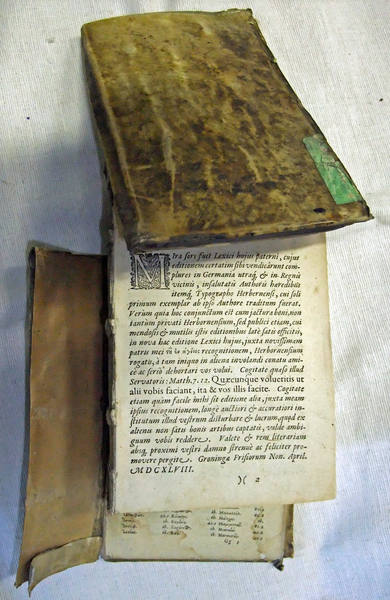 MIra fors fuit Lexici hujus paterni, cujus
editionem certatim sibi vendicârunt com-
plures in Germania utraq;, & in Regnis
vicinis, insalutatis Authoris heredibus
itemq; Typographo Herbornensi, cui soli
primum exemplar ab ipso Authore traditum fuerat.
Verùm quia hoc conjunctum est cum jactura boni, non
tantùm privati Herbornensium, sed publici etiam, cui
mendosis & mutilis istis editionibus latè satis officitis,
in nova hac editione Lexici hujus, juxta novissimam
patris mei recognitionem, Herbornensium
rogatu, à tam iniquo in aliena involandi conatu ami-
cè ac seriò dehortari vos volui. Cogitate quæso illud
Servatoris: Matth. 7. 12. Quæcunque volueritis ut
alii vobis faciant, ita & vos illis facite. Cogitate
etiam quàm facile mihi sit editione aliâ, juxta meam
ipsius recognitionem, longè auctiore & accuratiori in-
stitutum illud vestrum disturbare & lucrum, quod ex
alieno non satis bonis artibus captatis, valde ambi-
guum vobis reddere. Valete & rem literariam
absq; proximi vestri damno strenuè ac feliciter pro-
movere pergite. Groningæ Frisiorum Non. April.
MDCXLVIII.
)( 2